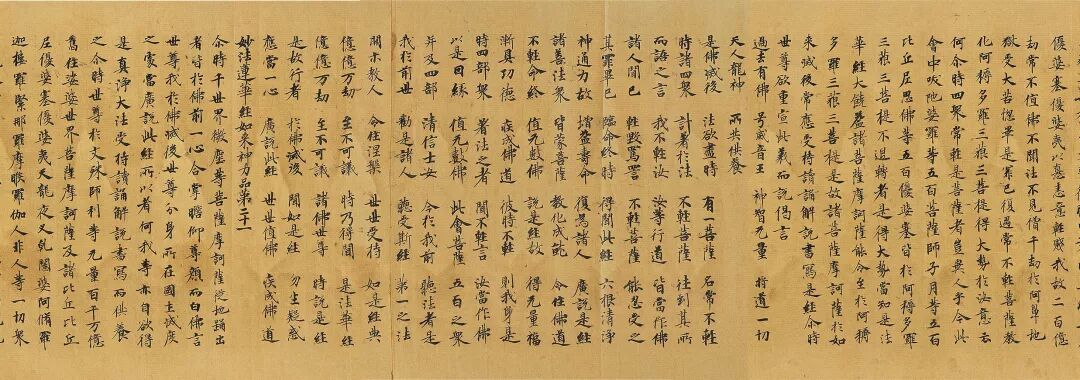 優婆塞優婆夷以瞋恚意輕賤我故二百億
劫常不值佛不聞法不見僧千劫於阿鼻地
獄受大苦惱畢是罪已復遇常不輕菩薩教
化阿耨多羅三藐三菩提得大勢於汝意云
何尒時四衆常輕是菩薩者豈異人乎今此
會中跋陁婆羅等五百菩薩師子月等五百
比丘尼思佛等五百優婆塞皆於阿耨多羅
三藐三菩提不退轉者是得大勢當知是法
華經大饒益諸菩薩摩訶薩能令至於阿耨
多羅三藐三菩提是故諸菩薩摩訶薩於如
來滅後常應受持讀誦解說書寫是經尒時
世尊欲重宣此義而說偈言
過去有佛 号威音王 神智无量 將導一切
天人龍神 所共供養
是佛滅後 法欲盡時 有一菩薩 名常不輕
時諸四衆 計著於法 不輕菩薩 往到其所
而語之言 我不輕汝 汝等行道 皆當作佛
諸人聞已 輕毀罵詈 不輕菩薩 能忍受之
其罪畢已 臨命終時 得聞此經 六根清淨
神通力故 增益壽命 復爲諸人 廣說是經
諸著法衆 皆蒙菩薩 教化成就 令住佛道
不輕命終 值无數佛 說是經故 得无量福
漸具功德 疾成佛道 彼時不輕 則我身是
時四部衆 著法之者 聞不輕言 汝當作佛
以是因緣 值无數佛 此會菩薩 五百之衆
并及四部 清信士女 今於我前 聽法者是
我於前世 勸是諸人 聽受斯經 第一之法
開示教人 令住涅槃 世世受持 如是經典
億億万劫 至不可議 時乃得聞 是法華經
億億万劫 至不可議 諸佛世尊 時說是經
是故行者 於佛滅後 聞如是經 勿生疑惑
應當一心 廣說此經 世世值佛 疾成佛道
妙法蓮華經如來神力品第二十一
尒時千世界微塵等菩薩摩訶薩從地踊出
者皆於佛前一心合掌瞻仰尊顏而白佛言
世尊我於佛滅後世尊分身所在國土滅度
之處當廣說此經所以者何我等亦自欲得
是真淨大法受持讀誦解說書寫而供養
之尒時世尊於文殊師利等无量百千万億
舊住娑婆世界菩薩摩訶薩及諸比丘比丘
尼優婆塞優婆夷天龍夜叉乹闥婆阿脩羅
迦樓羅緊那羅摩睺羅伽人非人等一切衆